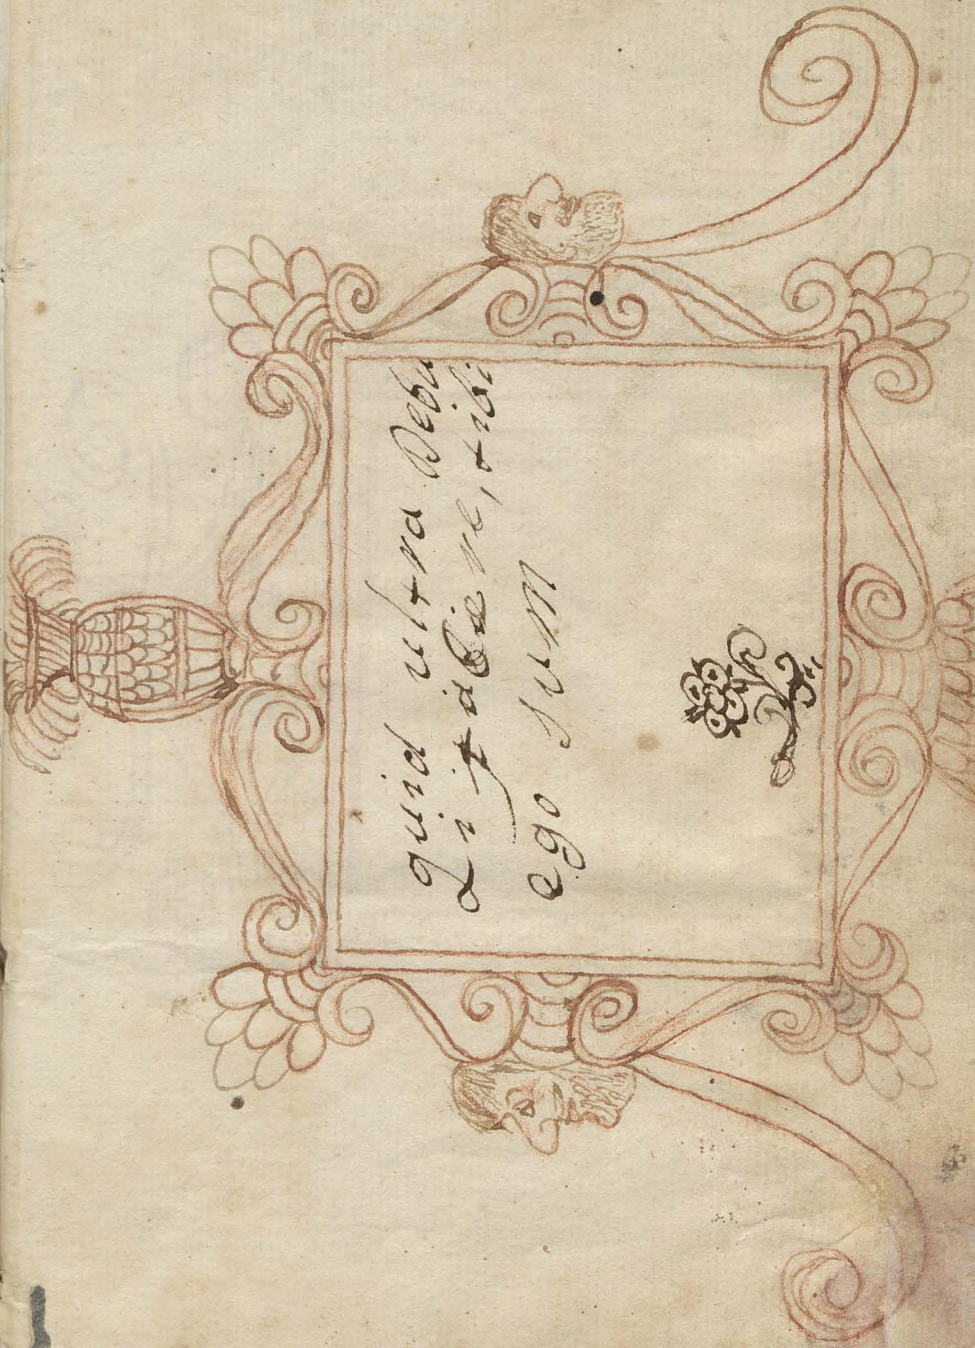 quid ultra Debu
i facere, tibi
ego sum